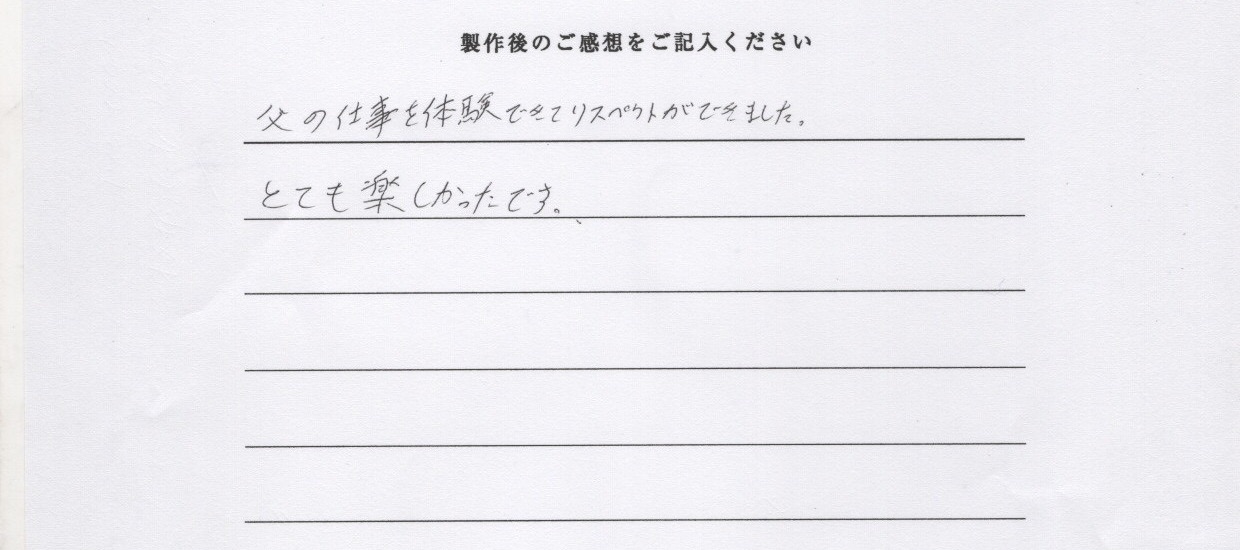 製作後のご感想をご記入ください
父の仕事を体験できてリスペクトができました。
とても楽しかったです。